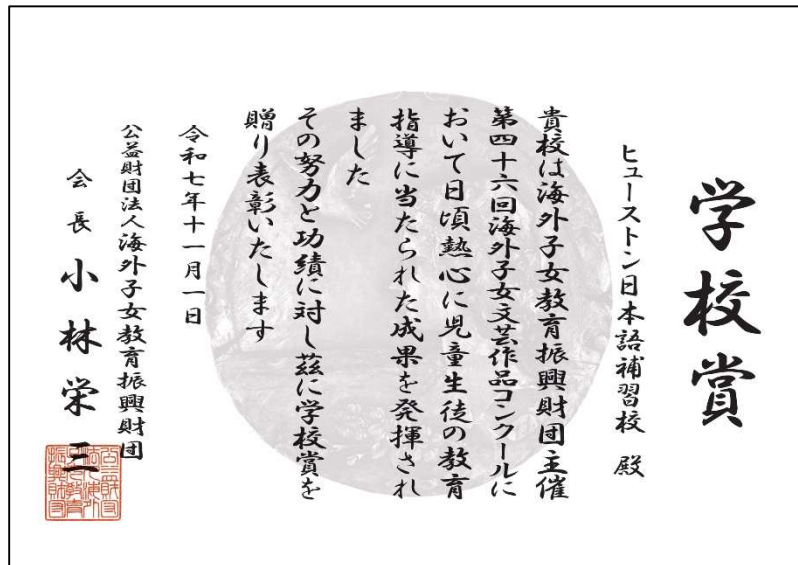 学校賞
ヒューストン日本語補習校 殿
貴校は海外子女教育振興財団主催
第四十六回海外子女文芸作品コンクールに
おいて日頃熱心に児童生徒の教育
指導に当たられた成果を発揮され
ました
その努力と功績に対し茲に学校賞を
贈り表彰いたします
令和七年十一月一日
公益財団法人海外子女教育振興財団
会長 小林栄三